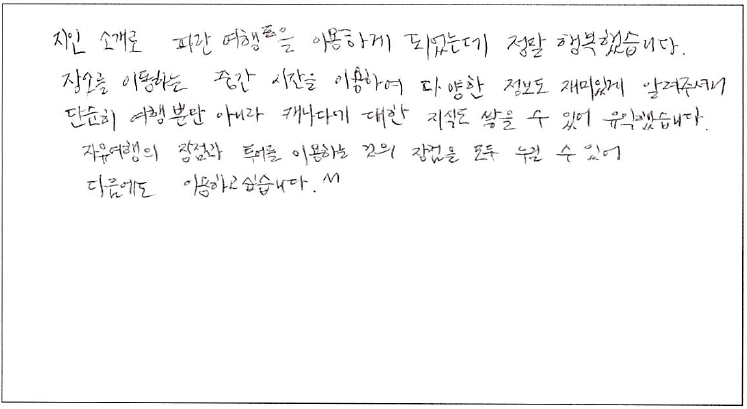 지인 소개로 파란 여행을 이용하게 되었는데 정말 행복했습니다.
장소를 이동하는 중간 시간을 이용하여 다양한 정보도 재미있게 알려주셔서
단순히 여행뿐만 아니라 캐나다에 대한 지식도 쌓을 수 있어 유익했습니다.
자유여행의 장점과 투어를 이용하는 것의 장점을 모두 누릴 수 있어
다음에도 이용하고싶습니다.